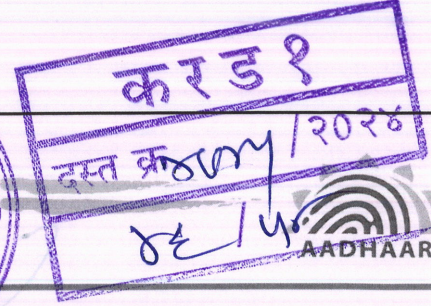 करड१
दस्त क्र /२०२४
४६ / ५८
AADHAAR